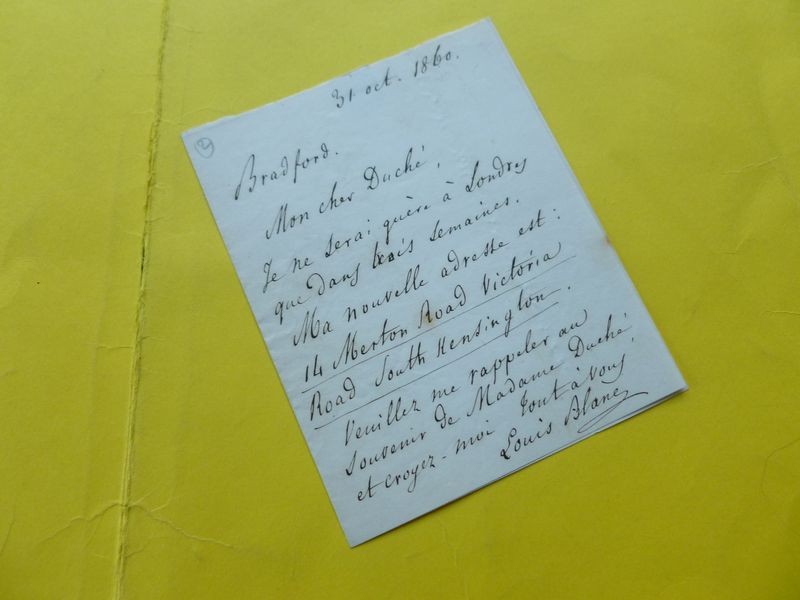 2
31 oct. 1860.
Bradford.
Mon cher Duché,
Je ne serai guère à Londres
que dans trois semaines.
Ma nouvelle adresse est :
14 Merton Road Victoria
Road South Kensington.
Veuillez me rappeler au
souvenir de Madame Duché,
et croyez-moi tout à vous,
Louis Blanc